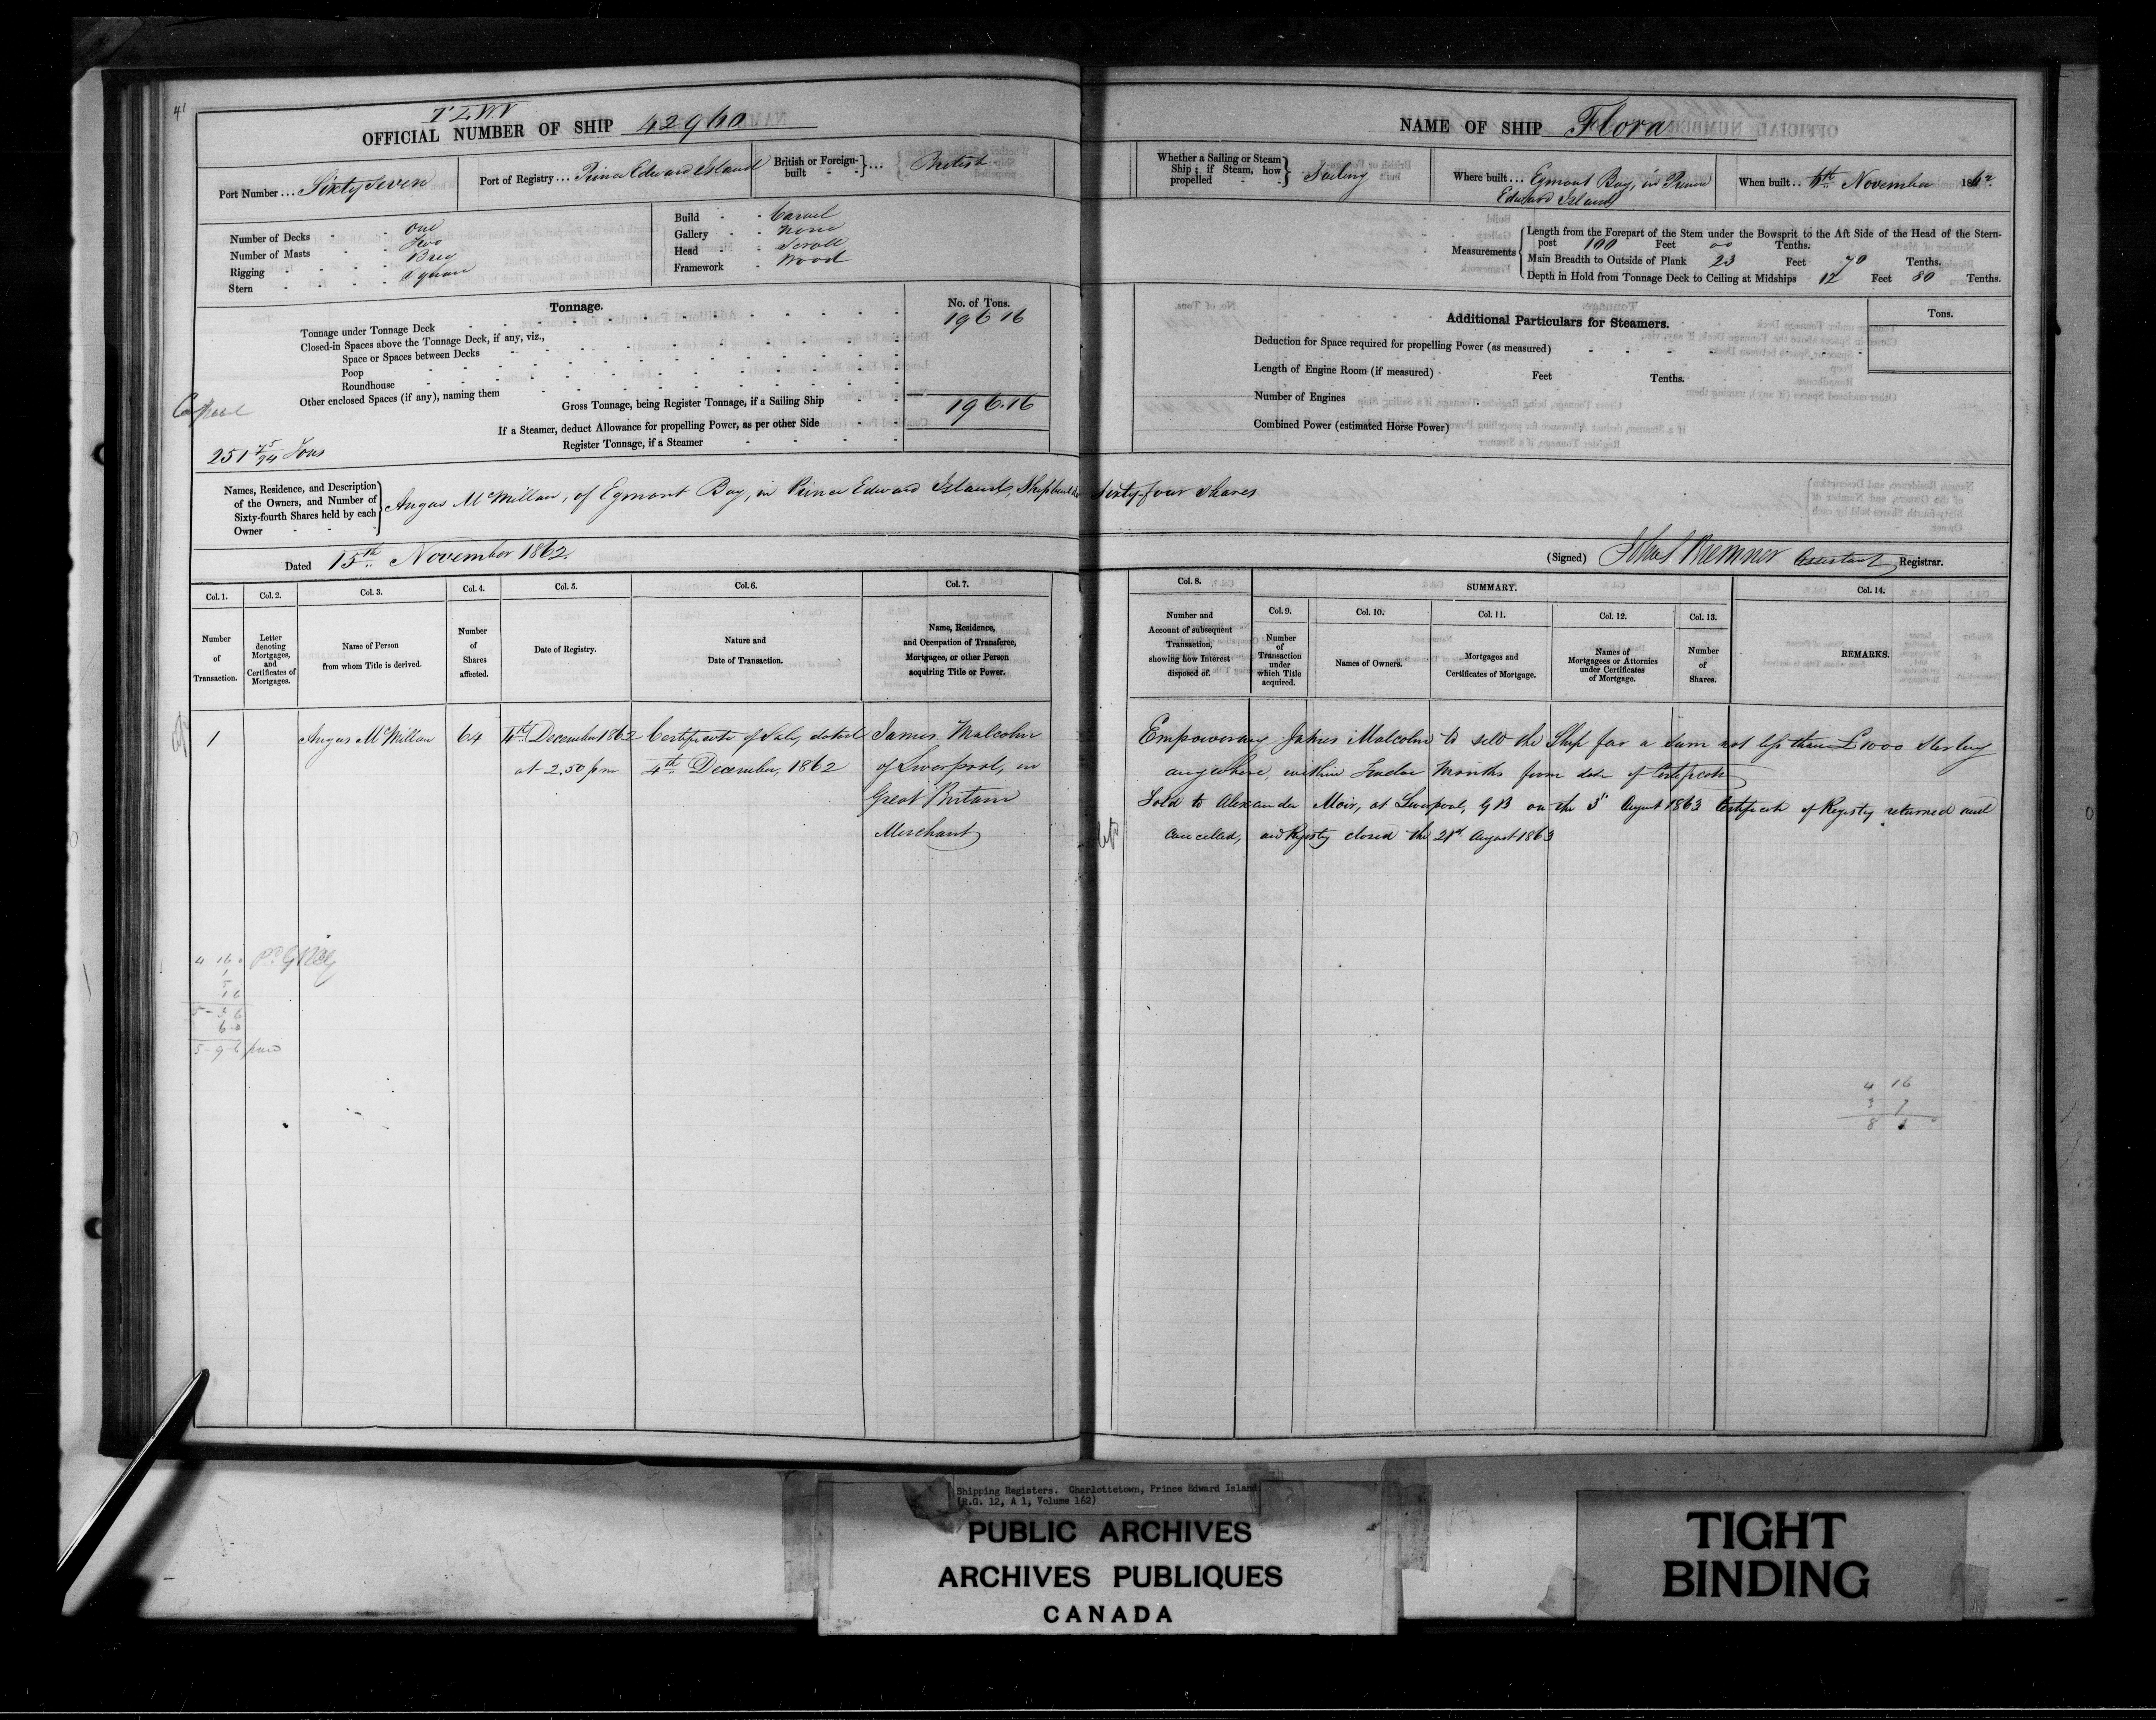 41
T L W V
OFFICIAL NUMBER OF SHIP 42960
Port Number ... Sixty Seven
Port of Registry ... Prince Edward Island
British or Foreign-built } ... British
Number of Decks - One
Number of Masts - Two
Rigging - Brig
Stern - Square
Build - Carvel
Gallery - None
Head - Scroll
Framework - Wood
Tonnage.
No. of Tons.
Tonnage under Tonnage Deck 196 16
Closed-in Spaces above the Tonnage Deck, if any, viz.,
Space or Spaces between Decks
Poop
Roundhouse
Other enclosed Spaces (if any), naming them
Gross Tonnage, being Register Tonnage, if a Sailing Ship 196.16
If a Steamer, deduct Allowance for propelling Power, as per other Side
Register Tonnage, if a Steamer
251 75/94 Tons
Names, Residence, and Description of the Owners, and Number of Sixty-fourth Shares held by each Owner } Angus McMillan, of Egmont Bay, in Prince Edward Island, Shipbuilder Sixty-four shares
Dated 15th November 1862.
NAME OF SHIP Flora
Whether a Sailing or Steam Ship; if Steam, how propelled } Sailing
Where built ... Egmont Bay, in Prince
Edward Island
When built .. 4th November 1862.
Measurements
Length from the Forepart of the Stem under the Bowsprit to the Aft Side of the Head of the Stern-
post 100 Feet 00 Tenths.
Main Breadth to Outside of Plank 23 Feet 70 Tenths.
Depth in Hold from Tonnage Deck to Ceiling at Midships 12 Feet 80 Tenths.
Additional Particulars for Steamers.
Tons.
Deduction for Space required for propelling Power (as measured)
Length of Engine Room (if measured) Feet Tenths.
Number of Engines
Combined Power (estimated Horse Power)
(Signed) John Bremner Assistant Registrar.
Col. 1. Col. 2. Col. 3. Col. 4. Col. 5. Col. 6. Col. 7.
Number of Transaction.
Letter denoting Mortgages, and Certificates of Mortgages.
Name of Person from whom Title is derived.
Number of Shares affected.
Date of Registry.
Nature and Date of Transaction.
Name, Residence, and Occupation of Transferee, Mortgagee, or other Person acquiring Title or Power.
Col. 8. SUMMARY. Col. 14.
Col. 9. Col. 10. Col. 11. Col. 12. Col. 13.
Number and Account of subsequent Transaction, showing how Interest disposed of.
Number of Transaction under which Title acquired.
Names of Owners.
Mortgages and Certificates of Mortgage.
Names of Mortgagees or Attornies under Certificates of Mortgage.
Number of Shares.
REMARKS.
1 Angus McMillan 64 4th December 1862 Certificate of Sale, dated James Malcolm
at 2,50 pm 4th December, 1862 of Liverpool, in
Great Britain
Merchant
Empowering James Malcolm to sell the Ship for a sum not less than £1000 Sterling
anywhere, within Twelve Months from date of Certificate
Sold to Alexander Moir, at Liverpool, G B on the 5" August 1863 Certificate of Registry returned and
cancelled, and Registry closed the 21st August 1863
4 16
1
5
16
60
paid
4 16
3 7
8 3
Shipping Registers. Charlottetown, Prince Edward Island
(R.G. 12, A 1, Volume 162)
PUBLIC ARCHIVES
ARCHIVES PUBLIQUES
CANADA
TIGHT
BINDING